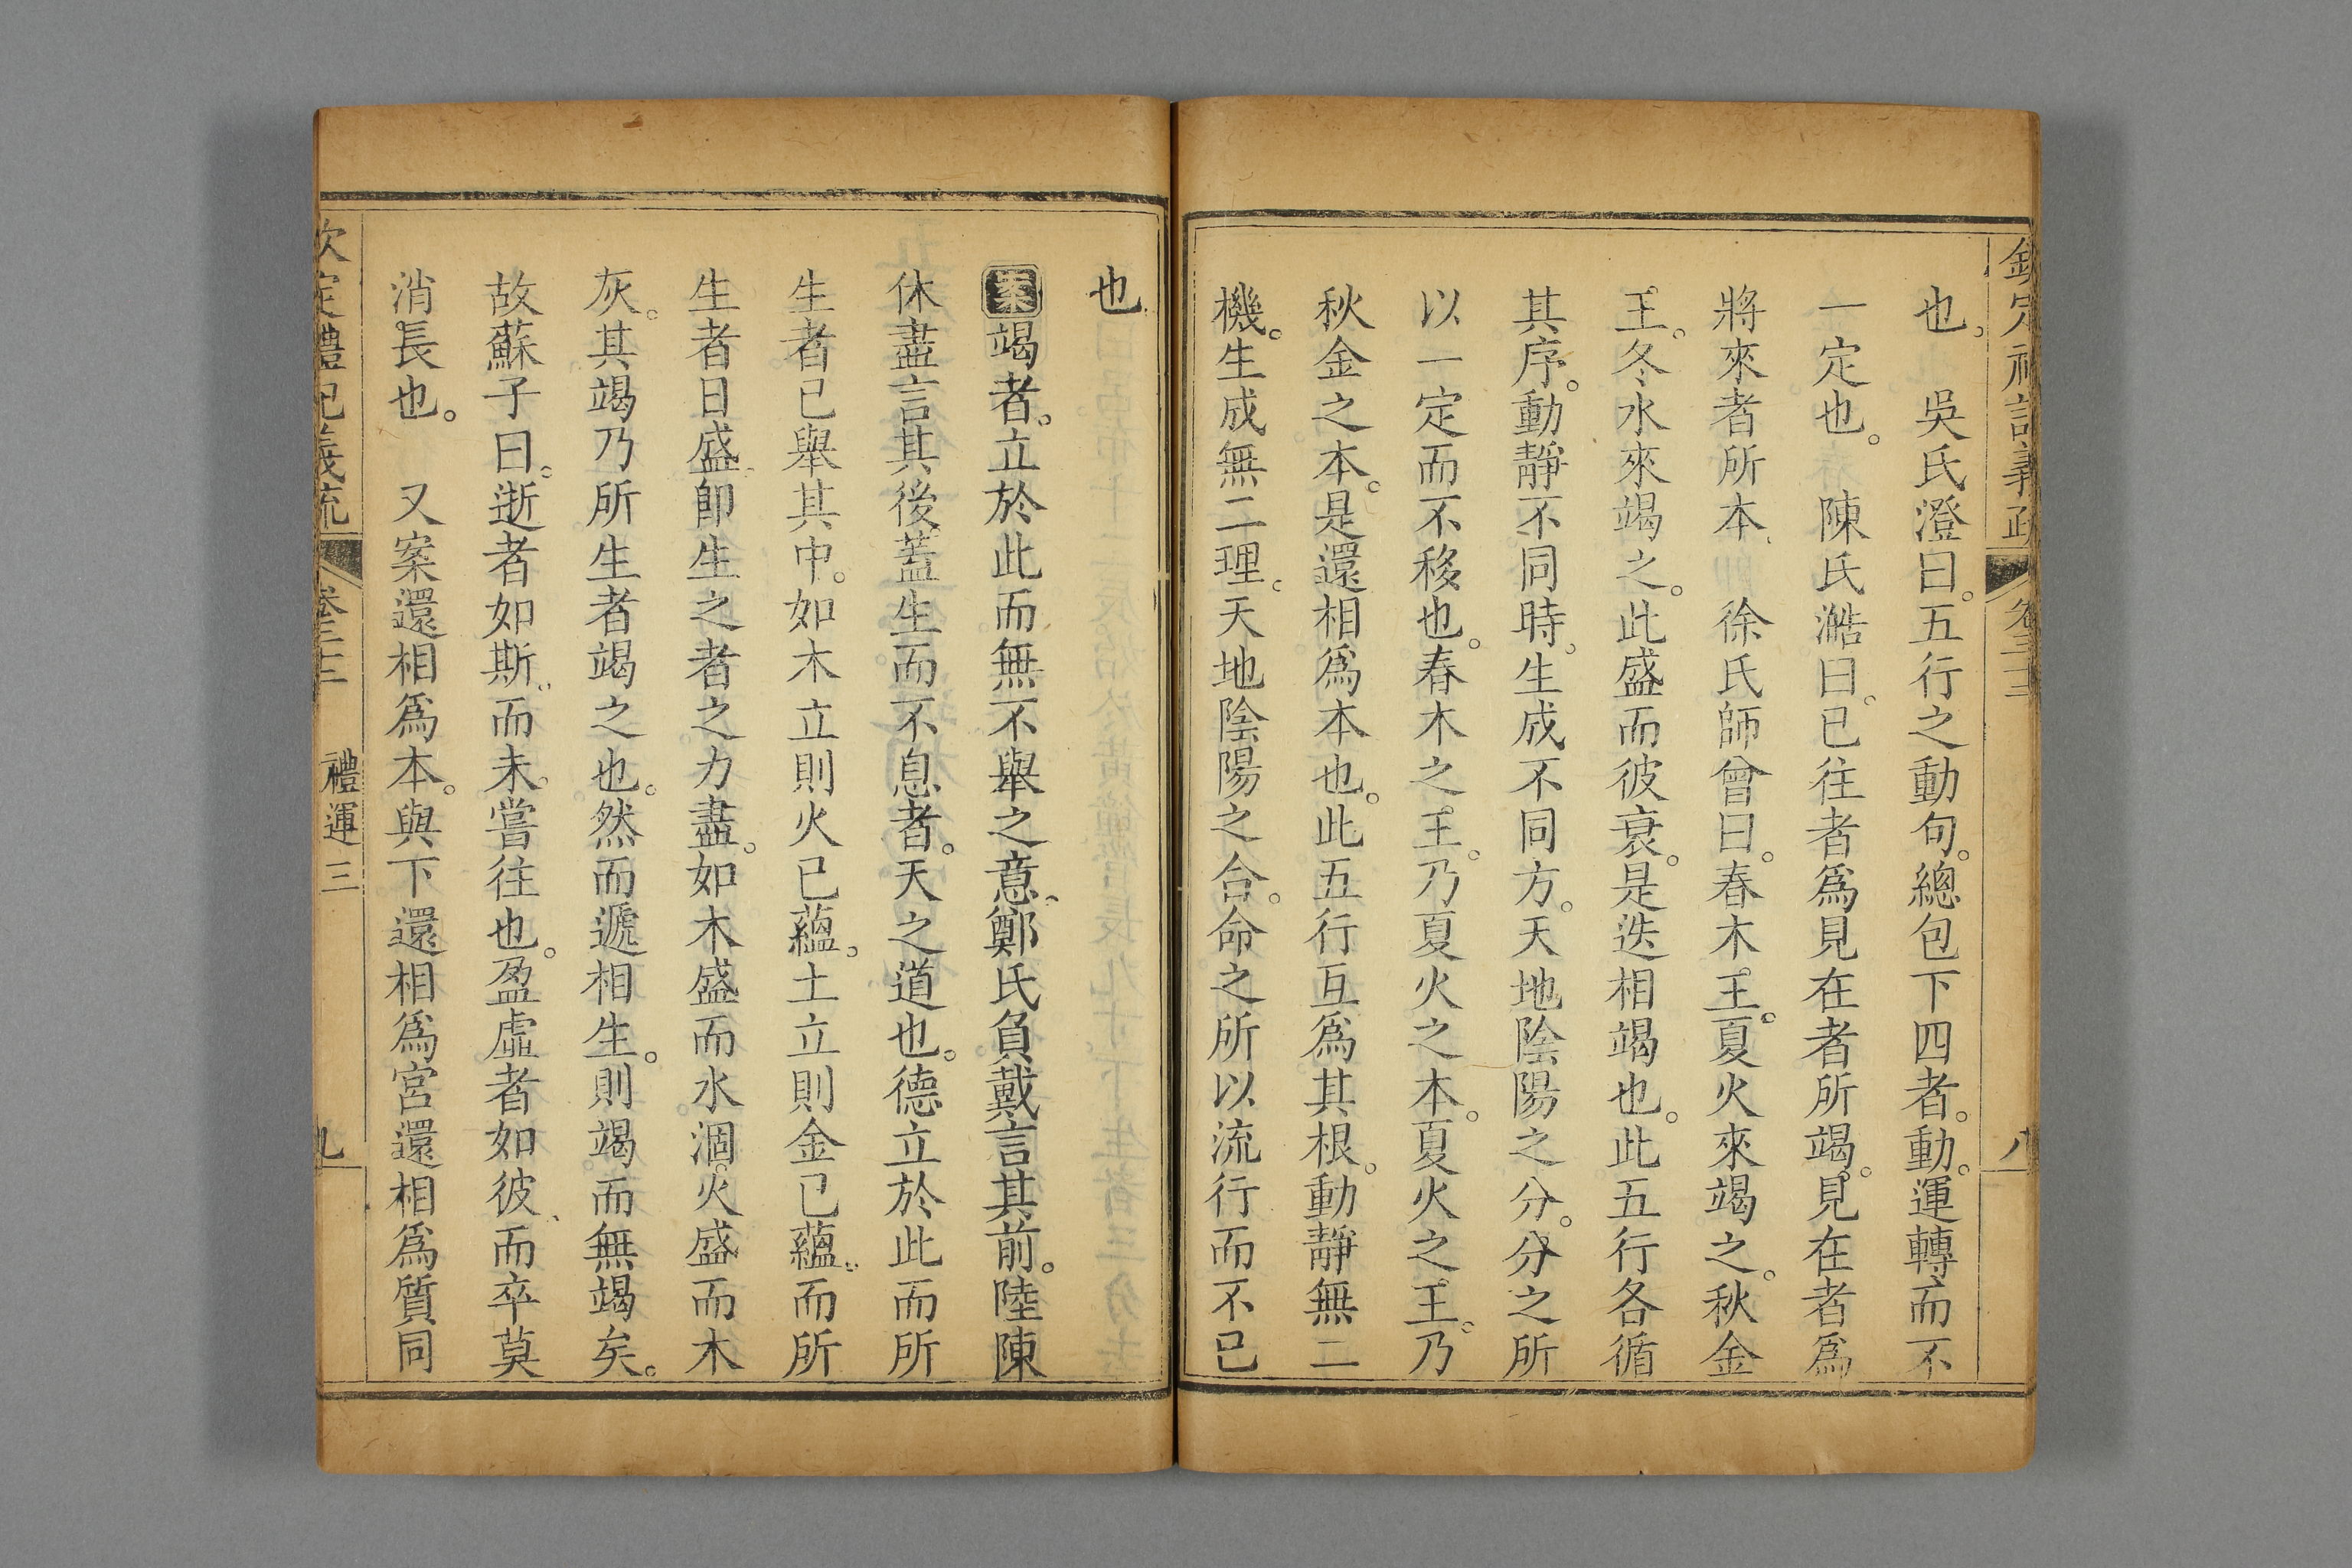 欽定禮記義疏 卷三十三 八
也。 吳氏澄曰。五行之動句。總包下四者。動。運轉而不
一定也。 陳氏澔曰。已往者為見在者所竭。見在者為
將來者所本、 徐氏師曾曰。春木王。夏火來竭之。秋金
王。冬水來竭之。此盛而彼衰。是迭相竭也。此五行各循
其序。動靜不同時。生成不同方。天地陰陽之分。分之所
以一定而不移也。春木之王。乃夏火之本。夏火之王。乃
秋金之本。是還相為本也。此五行互為其根。動靜無二
機。生成無二理。天地陰陽之合。命之所以流行而不已
也
案竭者。立於此而無不舉之意、鄭氏負戴言其前。陸陳
休盡言其後蓋生而不息者。天之道也。德立於此而所
生者已舉其中。如木立則火已蘊。土立則金已蘊。而所
生者日盛、卽生之者之力盡。如木盛而水涸。火盛而木
灰。其竭乃所生者竭之也。然而遞相生。則竭而無竭矣。
故蘇子曰。逝者如斯、而未嘗往也。盈虛者如彼、而卒莫
消長也。 又案還相為本。與下還相為宮還相為質同
欽定禮記義疏 卷三十三 禮運三 九